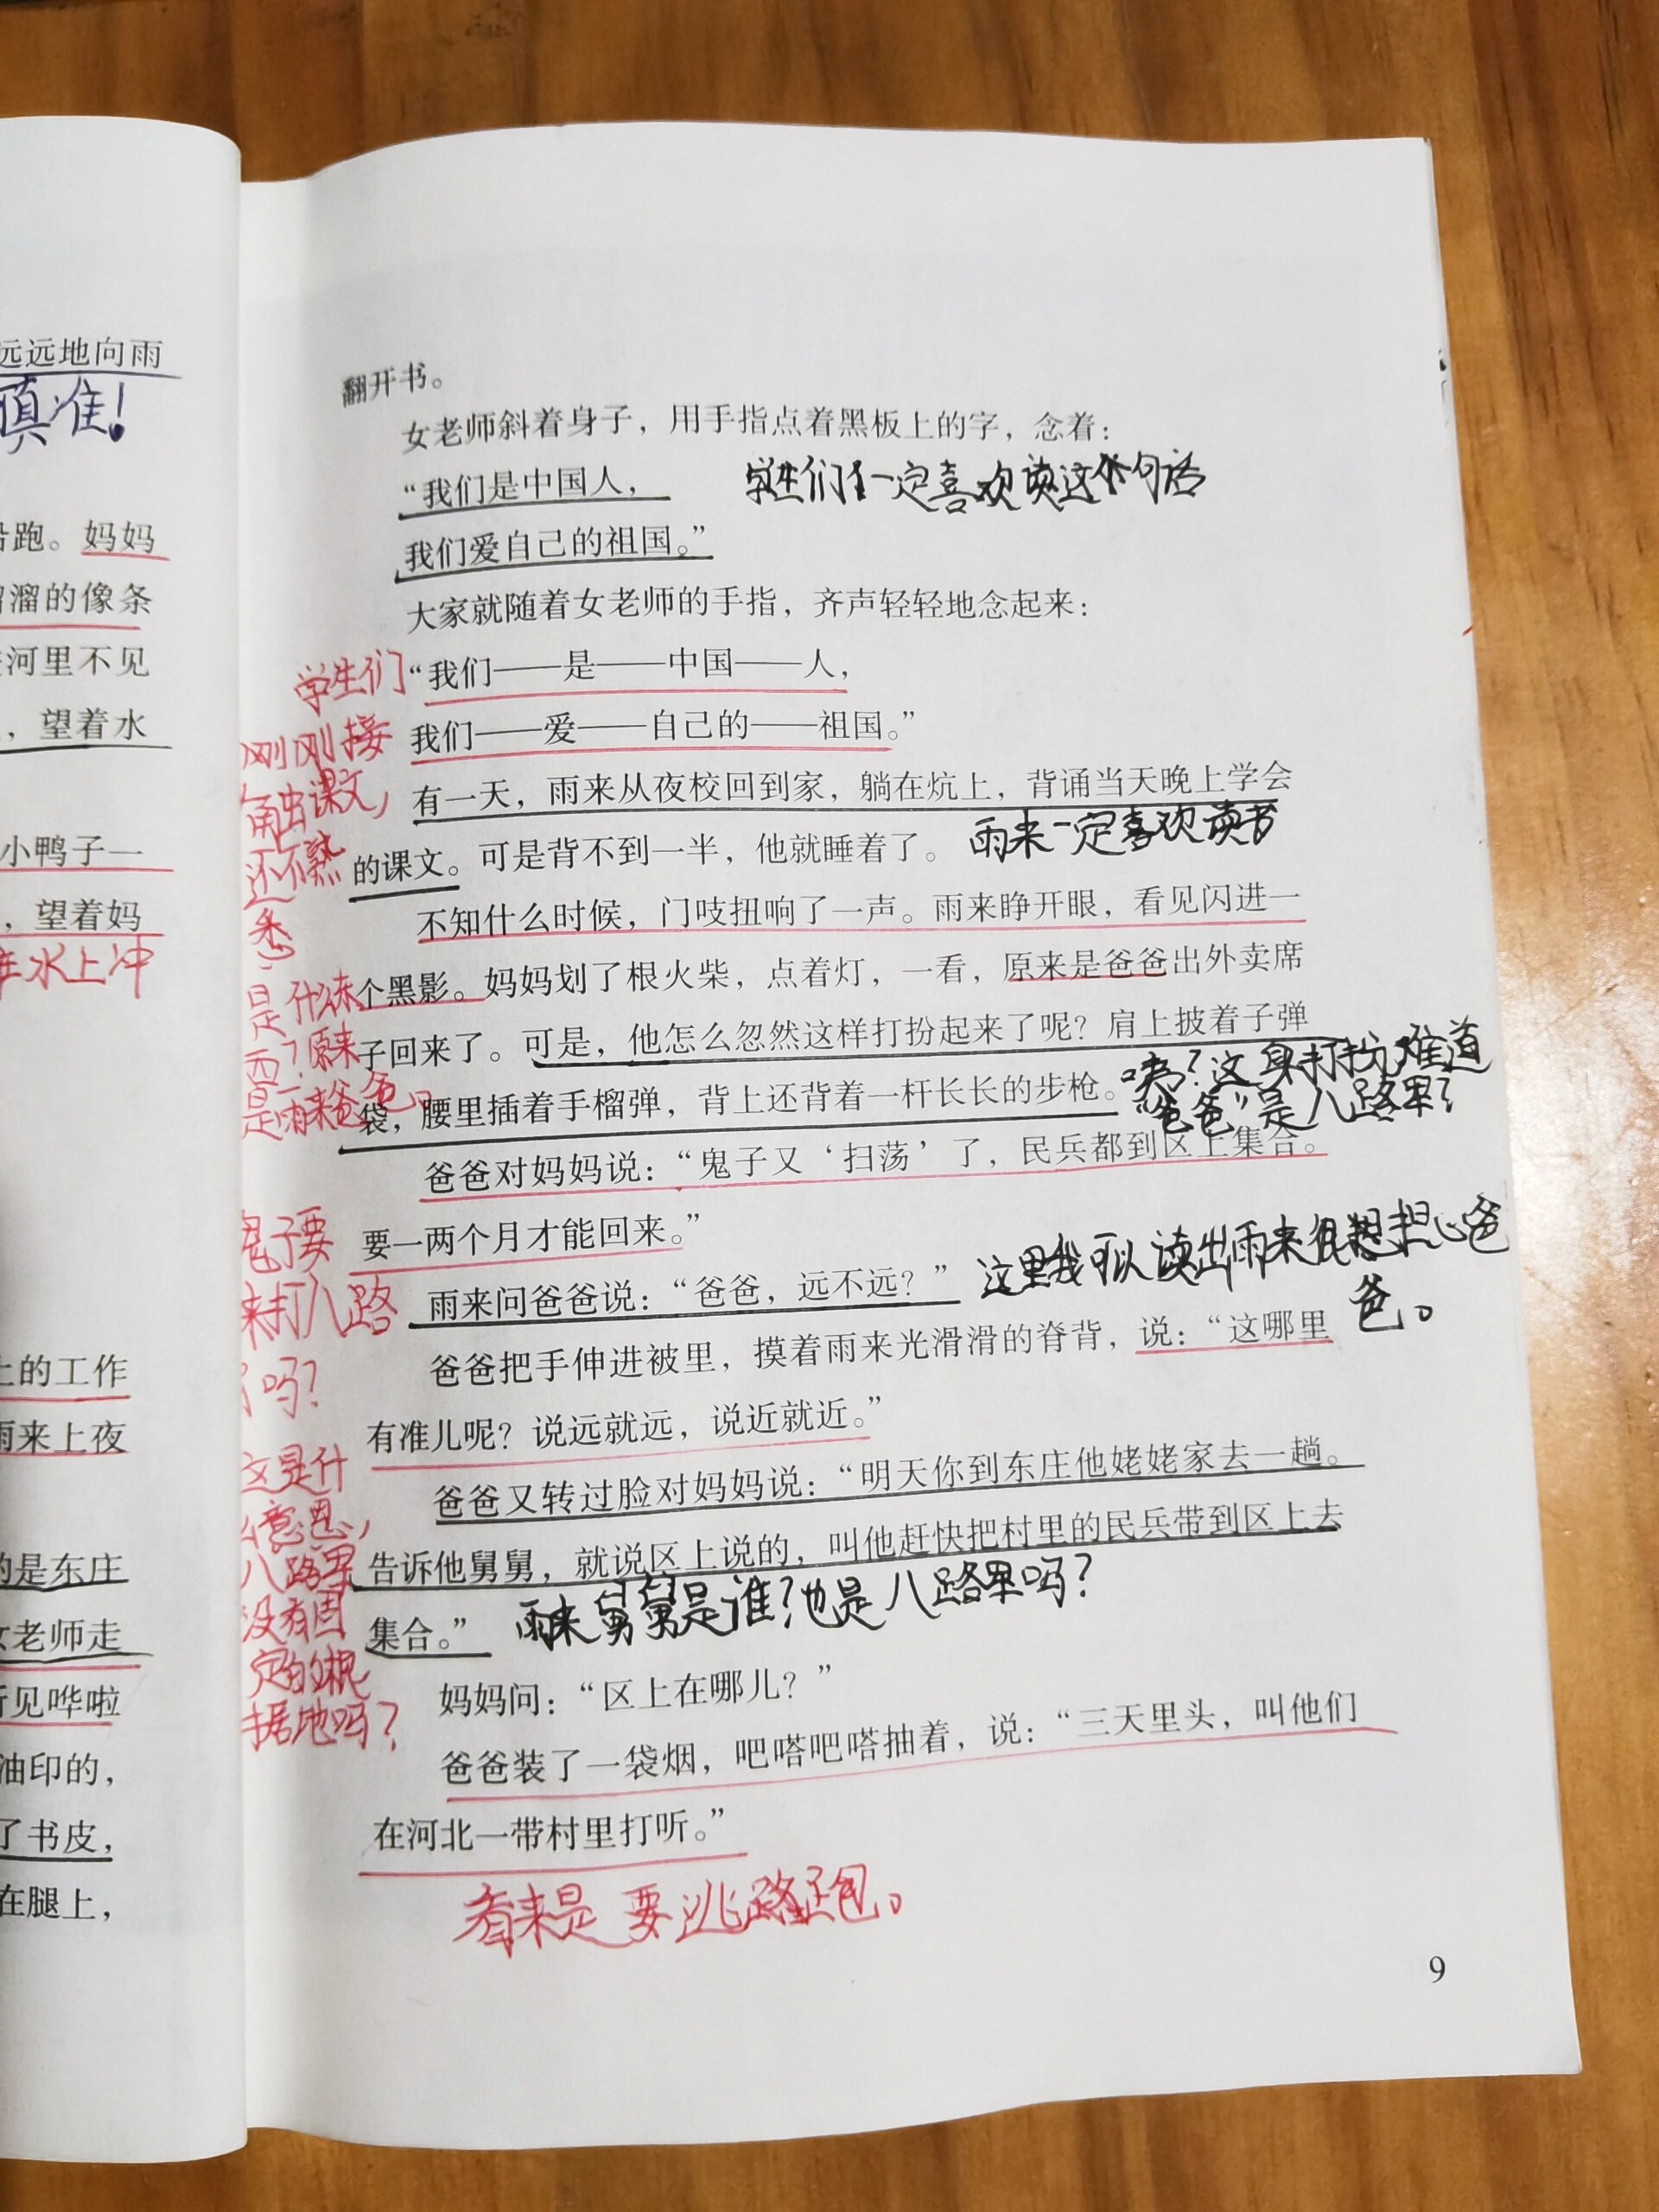 远远地向雨
真准！
沿跑。妈妈
溜溜的像条
河里不见
，望着水
小鸭子一
，望着妈
在水上冲
上的工作
雨来上夜
的是东庄
女老师走
听见哗啦
油印的，
了书皮，
在腿上，
翻开书。
女老师斜着身子，用手指点着黑板上的字，念着：
“我们是中国人，
学生们一定喜欢读这句话
我们爱自己的祖国。”
大家就随着女老师的手指，齐声轻轻地念起来：
“我们——是——中国——人，
我们——爱——自己的——祖国。”
学生们
刚刚接
触课文，
还不熟
悉
有一天，雨来从夜校回到家，躺在炕上，背诵当天晚上学会
的课文。可是背不到一半，他就睡着了。
雨来一定喜欢读书
不知什么时候，门吱扭响了一声。雨来睁开眼，看见闪进一
个黑影。妈妈划了根火柴，点着灯，一看，原来是爸爸出外卖席
子回来了。可是，他怎么忽然这样打扮起来了呢？肩上披着子弹
袋，腰里插着手榴弹，背上还背着一杆长长的步枪。
是什么东
西？原来
是雨来爸爸。
咦？这身打扮难道
“爸爸”是八路军？
爸爸对妈妈说：“鬼子又‘扫荡’了，民兵都到区上集合。
要一两个月才能回来。”
鬼子要
来打八路
了吗？
雨来问爸爸说：“爸爸，远不远？”
这里我可以读出雨来很担心爸
爸。
爸爸把手伸进被里，摸着雨来光滑滑的脊背，说：“这哪里
有准儿呢？说远就远，说近就近。”
这是什
么意思，
八路军
没有固
定的根
据地吗？
爸爸又转过脸对妈妈说：“明天你到东庄他姥姥家去一趟。
告诉他舅舅，就说区上说的，叫他赶快把村里的民兵带到区上去
集合。”
雨来舅舅是谁？他是八路军吗？
妈妈问：“区上在哪儿？”
爸爸装了一袋烟，吧嗒吧嗒抽着，说：“三天里头，叫他们
在河北一带村里打听。”
看来是要逃跑。
9